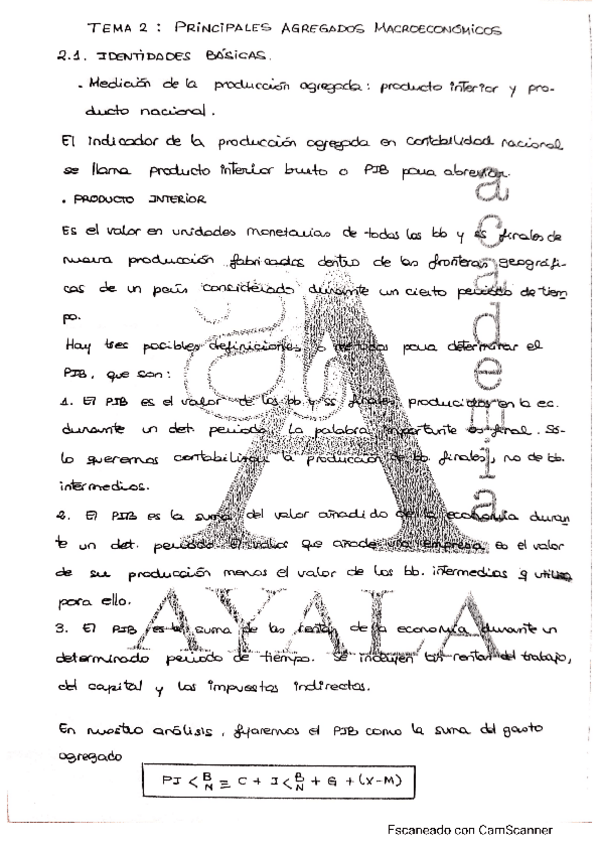 TEMA 2 : PRINCIPALES AGREGADOS MACROECONÓMICOS
2.1. IDENTIDADES BÁSICAS.
. Medición de la producción agregada: producto interior y pro-
ducto nacional.
El indicador de la producción agregada en contabilidad nacional
se llama producto interior bruto o PIB para abreviar.
. PRODUCTO INTERIOR
Es el valor en unidades monetarias de todos los bb y ss finales de
nueva producción fabricados dentro de las fronteras geográfi-
cas de un país considerado durante un cierto periodo de tiem
po.
Hay tres posibles definiciones o métodos para determinar el
PIB, que son:
1. El PIB es el valor de los bb y ss finales producidos en la ec.
durante un det. periodo. La palabra importante es final. Só-
lo queremos contabilizar la producción de bb. finales, no de bb.
intermedios.
2. El PIB es la suma del valor añadido de la economía duran
te un det. periodo. El valor que añade una empresa es el valor
de su producción menos el valor de los bb. intermedios q utiliza
para ello.
3. El PIB es la suma de las rentas de la economía durante un
determinado periodo de tiempo. Se incluyen las rentas del trabajo,
del capital y los impuestos indirectos.
En nuestro análisis, fijaremos el PIB como la suma del gasto
agregado
PI < B/N ≡ C + I < B/N + G + (X-M)
academia
AYALA
Escaneado con CamScanner